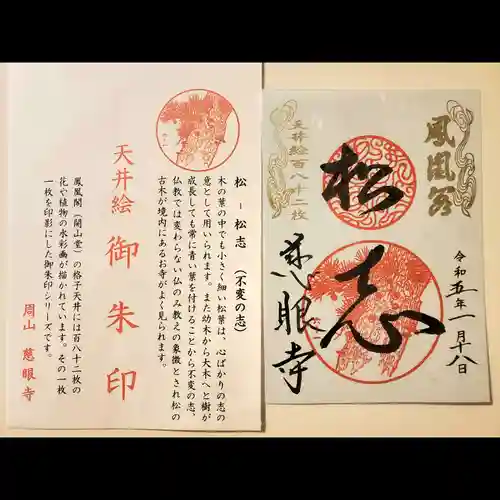 松 - 松志 (不変の志)
木の葉の中でも小さく細い松葉は、心ばかりの志の
意として用いられます。また幼木から大木へと樹が
成長しても常に青い葉を付けることから不変の志、
仏教では変わらない仏のみ教えの象徴とされ松の
古木が境内にあるお寺がよく見られます。
天井絵 御朱印
鳳凰閣(開山堂)の格子天井には百八十二枚の
花や植物の水彩画が描かれています。その一枚
一枚を印影にした御朱印シリーズです。
周山 慈眼寺
鳳凰閣
天井絵百八十二枚
松
志
令和五年一月十八日
慈眼寺